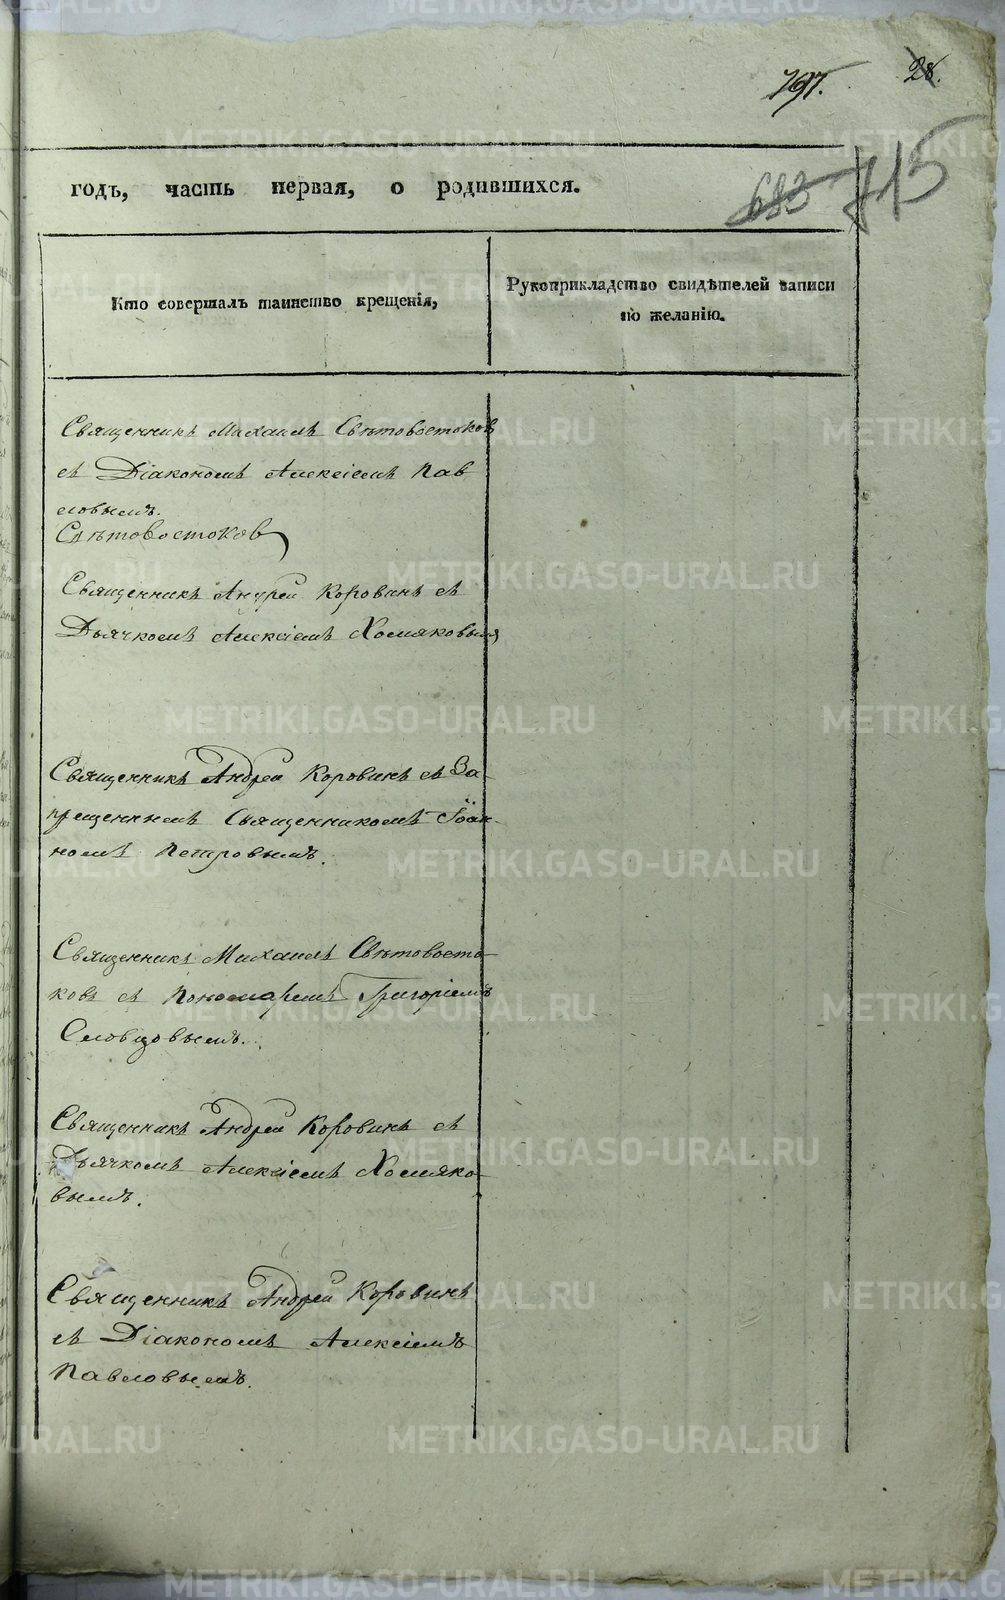 797.
28.
683
715
годъ, часть первая, о родившихся.
Кто совершалъ таинство крещенія,
Рукоприкладство свидѣтелей записи
по желанію.
Священникъ Михаилъ Свѣтовостоковъ
съ Діакономъ Алексіемъ Пав
ловымъ.
Свѣтовостоковъ
Священникъ Андрей Коровинъ съ
Дьячкомъ Алексіемъ Хомяковымъ
Священникъ Андрей Коровинъ съ За-
прещеннымъ Священникомъ Іоан-
номъ Петровымъ.
Священникъ Михаилъ Свѣтовосто-
ковъ съ Пономаремъ Григоріемъ
Словцовымъ.
Священникъ Андрей Коровинъ съ
Дьячкомъ Алексіемъ Хомяко-
вымъ.
Священникъ Андрей Коровинъ
съ Діакономъ Алексіемъ
Павловымъ.
METRIKI.GASO-URAL.RU